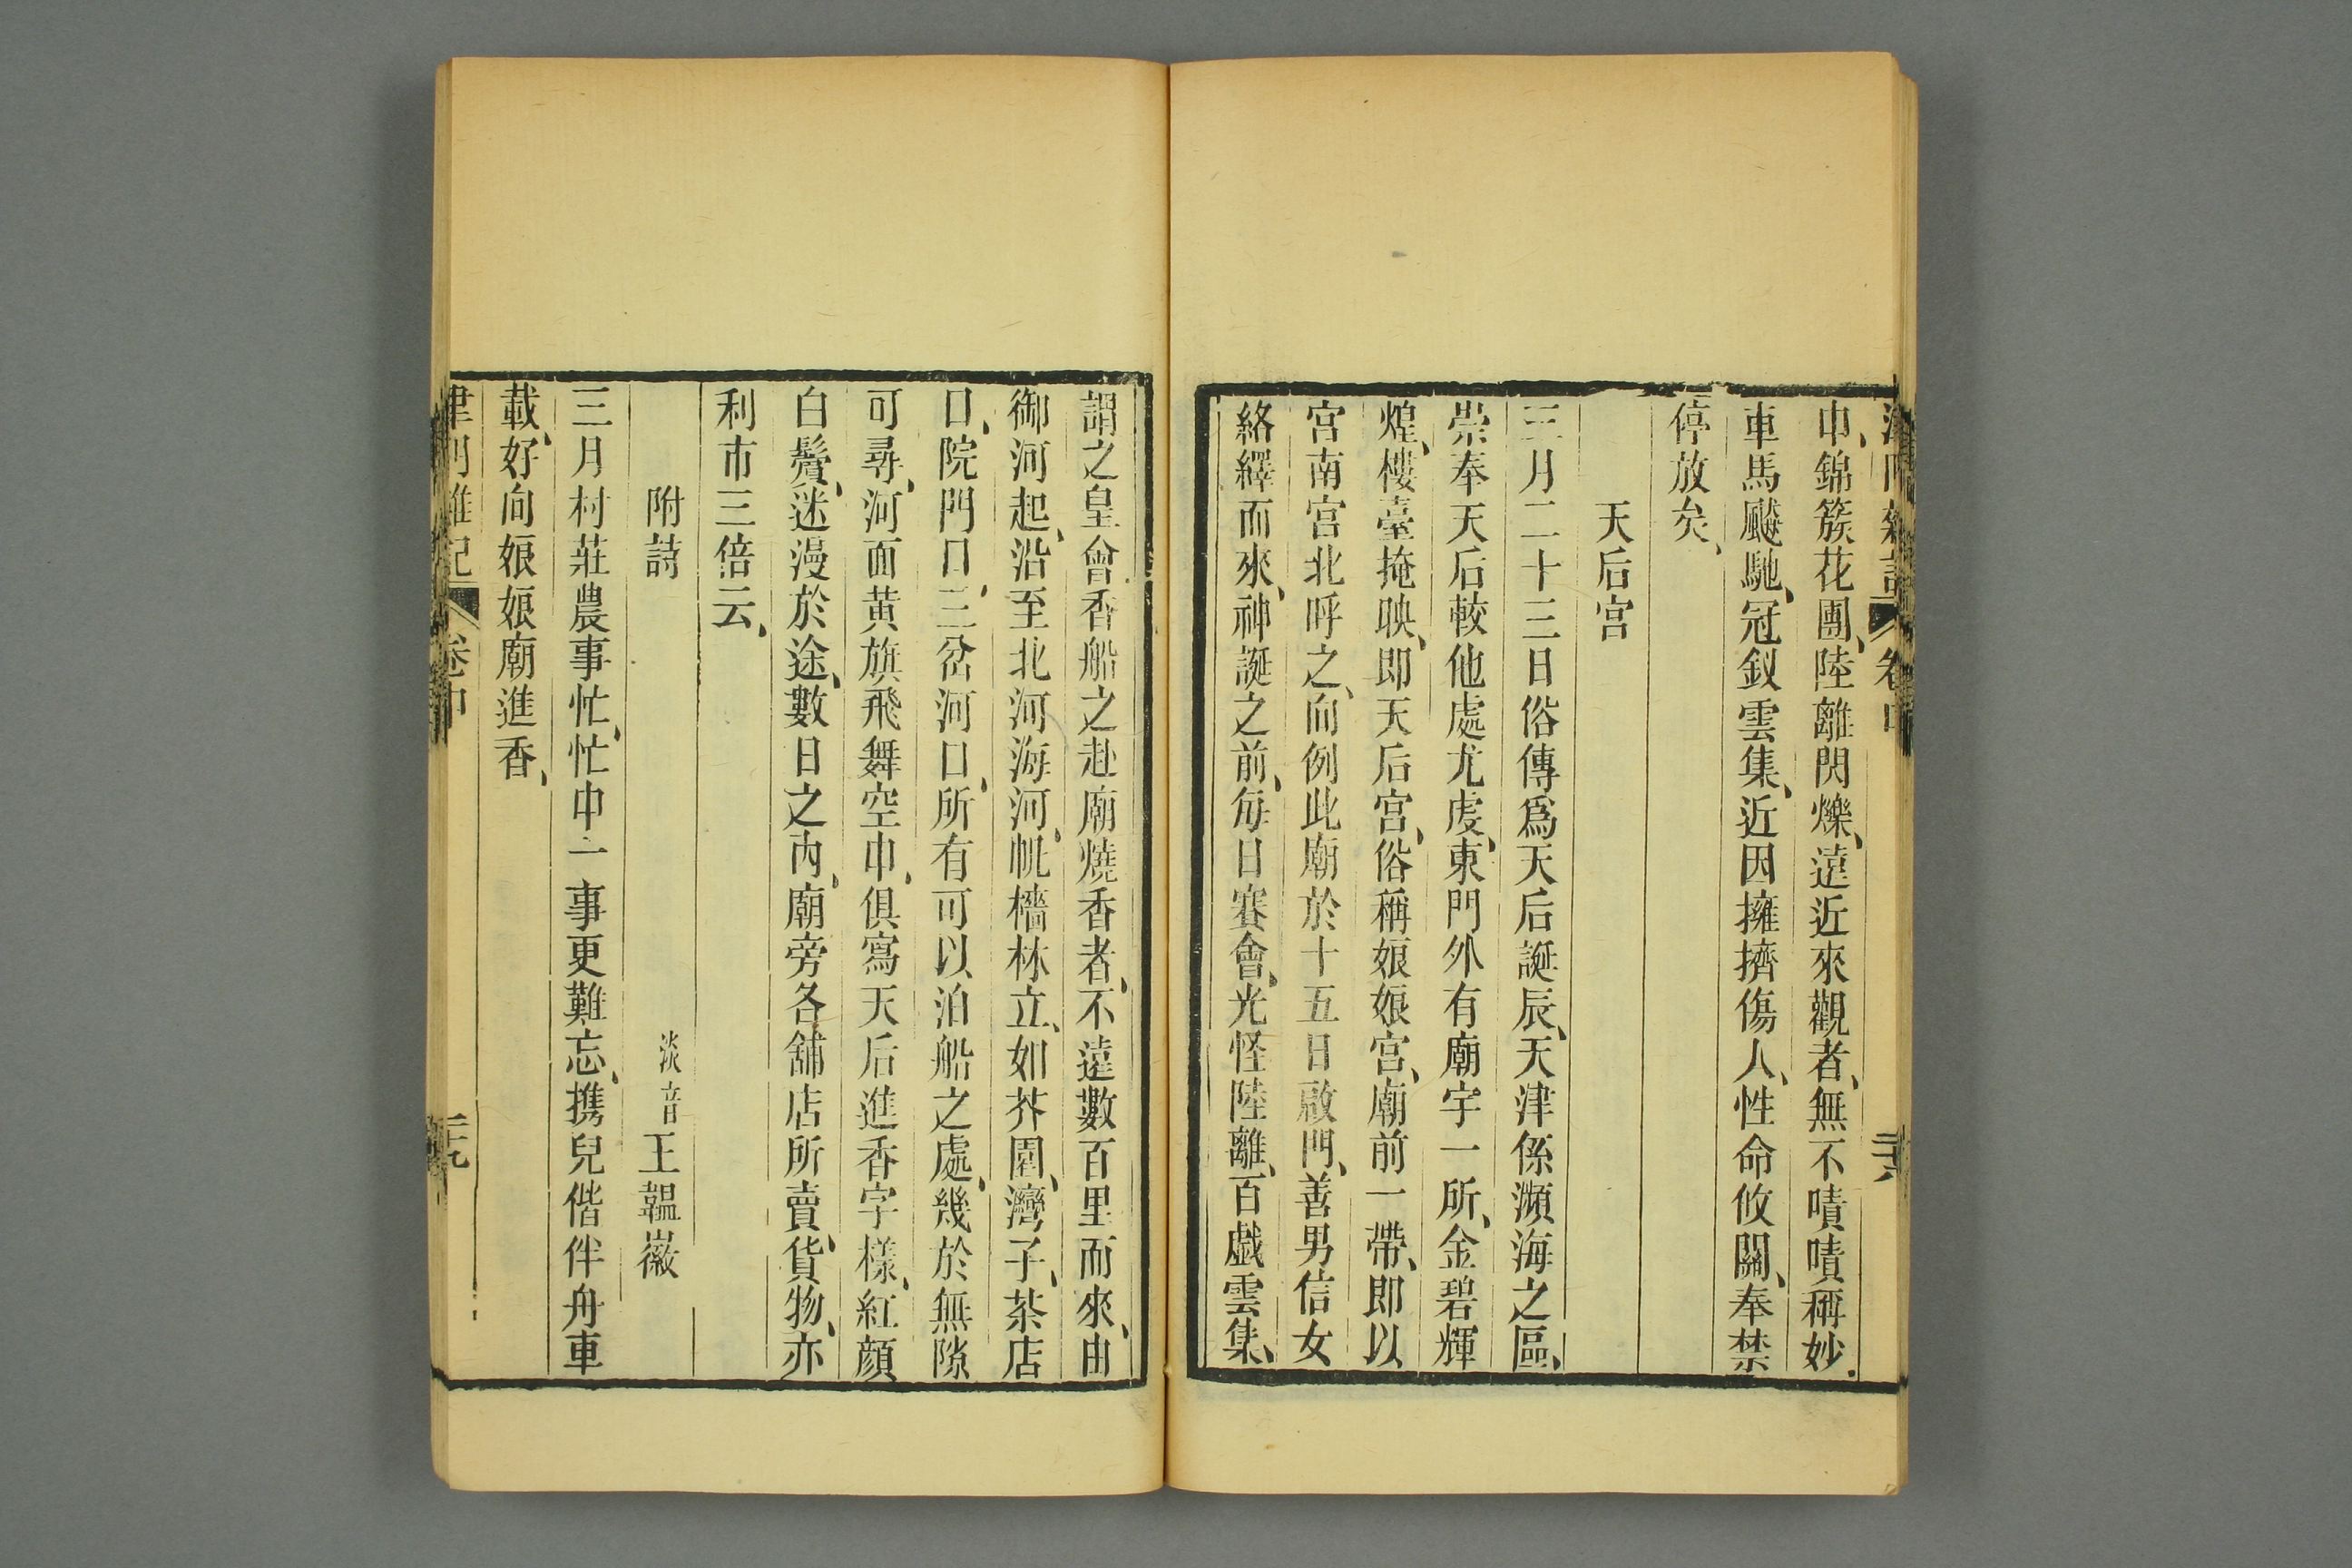 中、錦簇花團、陸離閃爍、遠近來觀者、無不嘖嘖稱妙、
車馬飈馳、冠釵雲集、近因擁擠傷人、性命攸關、奉禁
停放矣、
天后宮
三月二十三日俗傳爲天后誕辰、天津係瀕海之區、
崇奉天后較他處尤虔、東門外有廟宇一所、金碧輝
煌、樓臺掩映、即天后宮、俗稱娘娘宮、廟前一帶、即以
宮南宮北呼之、向例此廟於十五日啟門、善男信女
絡繹而來、神誕之前、每日賽會、光怪陸離、百戲雲集、
謂之皇會、香船之赴廟燒香者、不遠數百里而來、由
御河起、沿至北河海河、帆檣林立、如芥園、灣子、茶店
口、院門口、三岔河口、所有可以泊船之處、幾於無隙
可尋、河面黃旗飛舞空中、俱寫天后進香字樣、紅顏
白鬢、迷漫於途、數日之內、廟旁各舖店所賣貨物、亦
利市三倍云、
附詩
淡音王韞徽
三月村莊農事忙、忙中一事更難忘、攜兒偕伴舟車
載、好向娘娘廟進香、
津門雜記 卷中 二十九